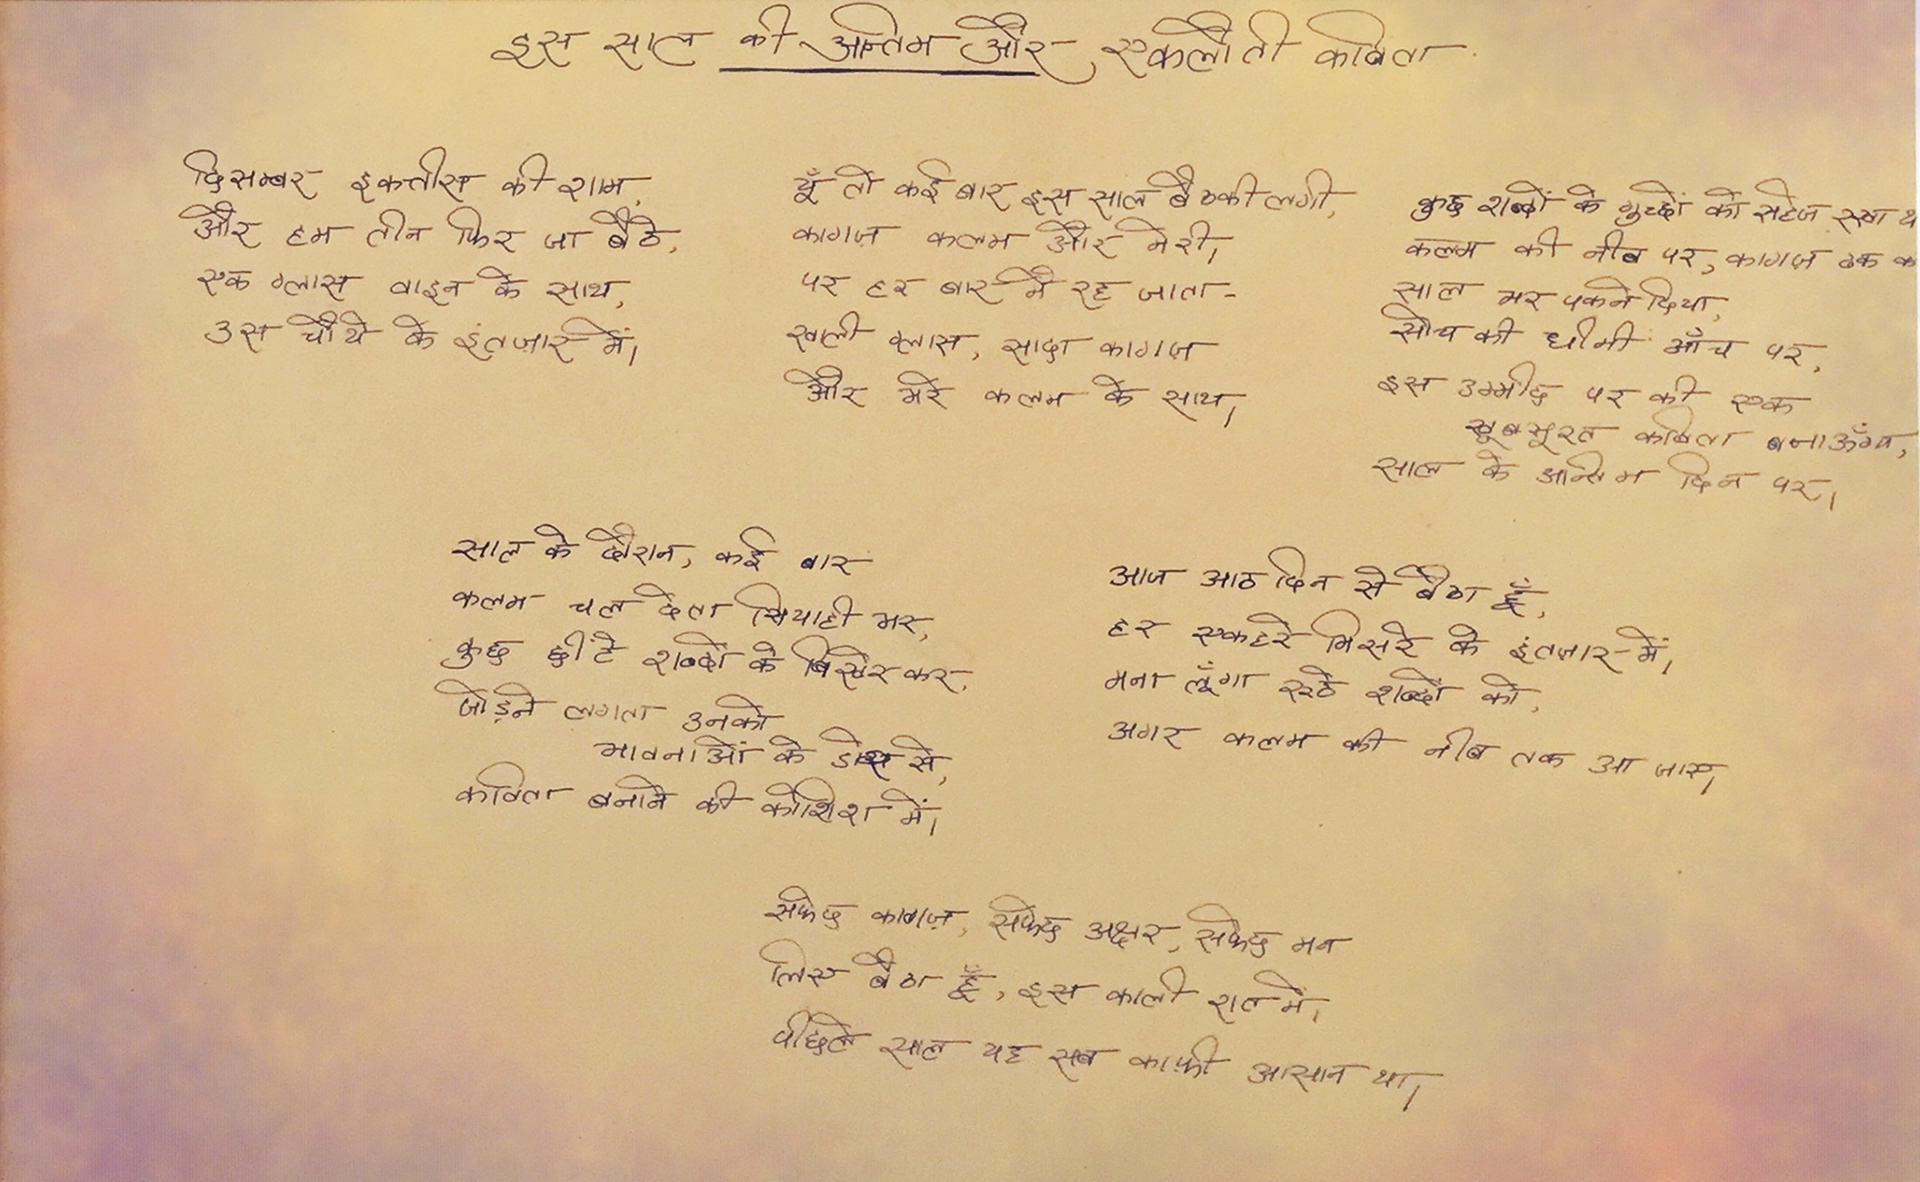 इस साल की अन्तिम और एकलौती कविता
दिसम्बर इकत्तीस की शाम,
और हम तीन फिर जा बैठे,
एक ग्लास वाइन के साथ,
उस चौथे के इंतज़ार में।
यूँ तो कई बार इस साल बैठकी लगी,
कागज़ कलम और मेरी,
पर हर बार मैं रह जाता -
खाली ग्लास, सादा कागज़
और मेरे कलम के साथ।
कुछ शब्दों के गुच्छों को सहेज रखा
कलम की नीब पर, कागज़ ढक
साल भर पकने दिया,
सोच की धीमी आँच पर,
इस उम्मीद पर की एक
खूबसूरत कविता बनाऊँगा,
साल के अन्तिम दिन पर।
साल के दौरान, कई बार
कलम चल देता सियाही भर,
कुछ छींटे शब्दों के बिखेर कर,
जोड़ने लगता उनको
भावनाओं के से,
कविता बनाने की कोशिश में।
आज आठ दिन से बैठा हूँ,
हर एकहरे मिसरे के इंतज़ार में,
मना लूँगा रूठे शब्दों को,
अगर कलम की नीब तक आ जाए।
सफेद कागज़, सफेद अक्षर, सफेद मन
लिए बैठा हूँ, इस काली रात में,
पीछले साल यह सब काफ़ी आसान था।